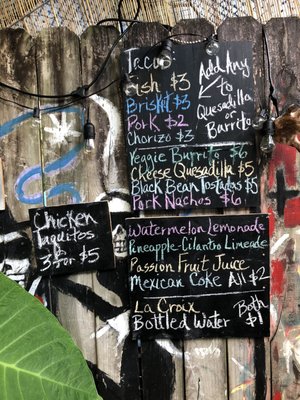 Tacos
Fish $3
Brisket $3
Pork $2
Chorizo $3
Add Any
to
Quesadilla
or
Burrito
Veggie Burrito $6
Cheese Quesadilla $5
Black Bean Tostadas $5
Pork Nachos $6
Chicken
Taquitos
3 for $5
Watermelon Lemonade
Pineapple-Cilantro Limeade
Passion Fruit Juice
Mexican Coke All $2
La Croix
Bottled Water
Both
$1